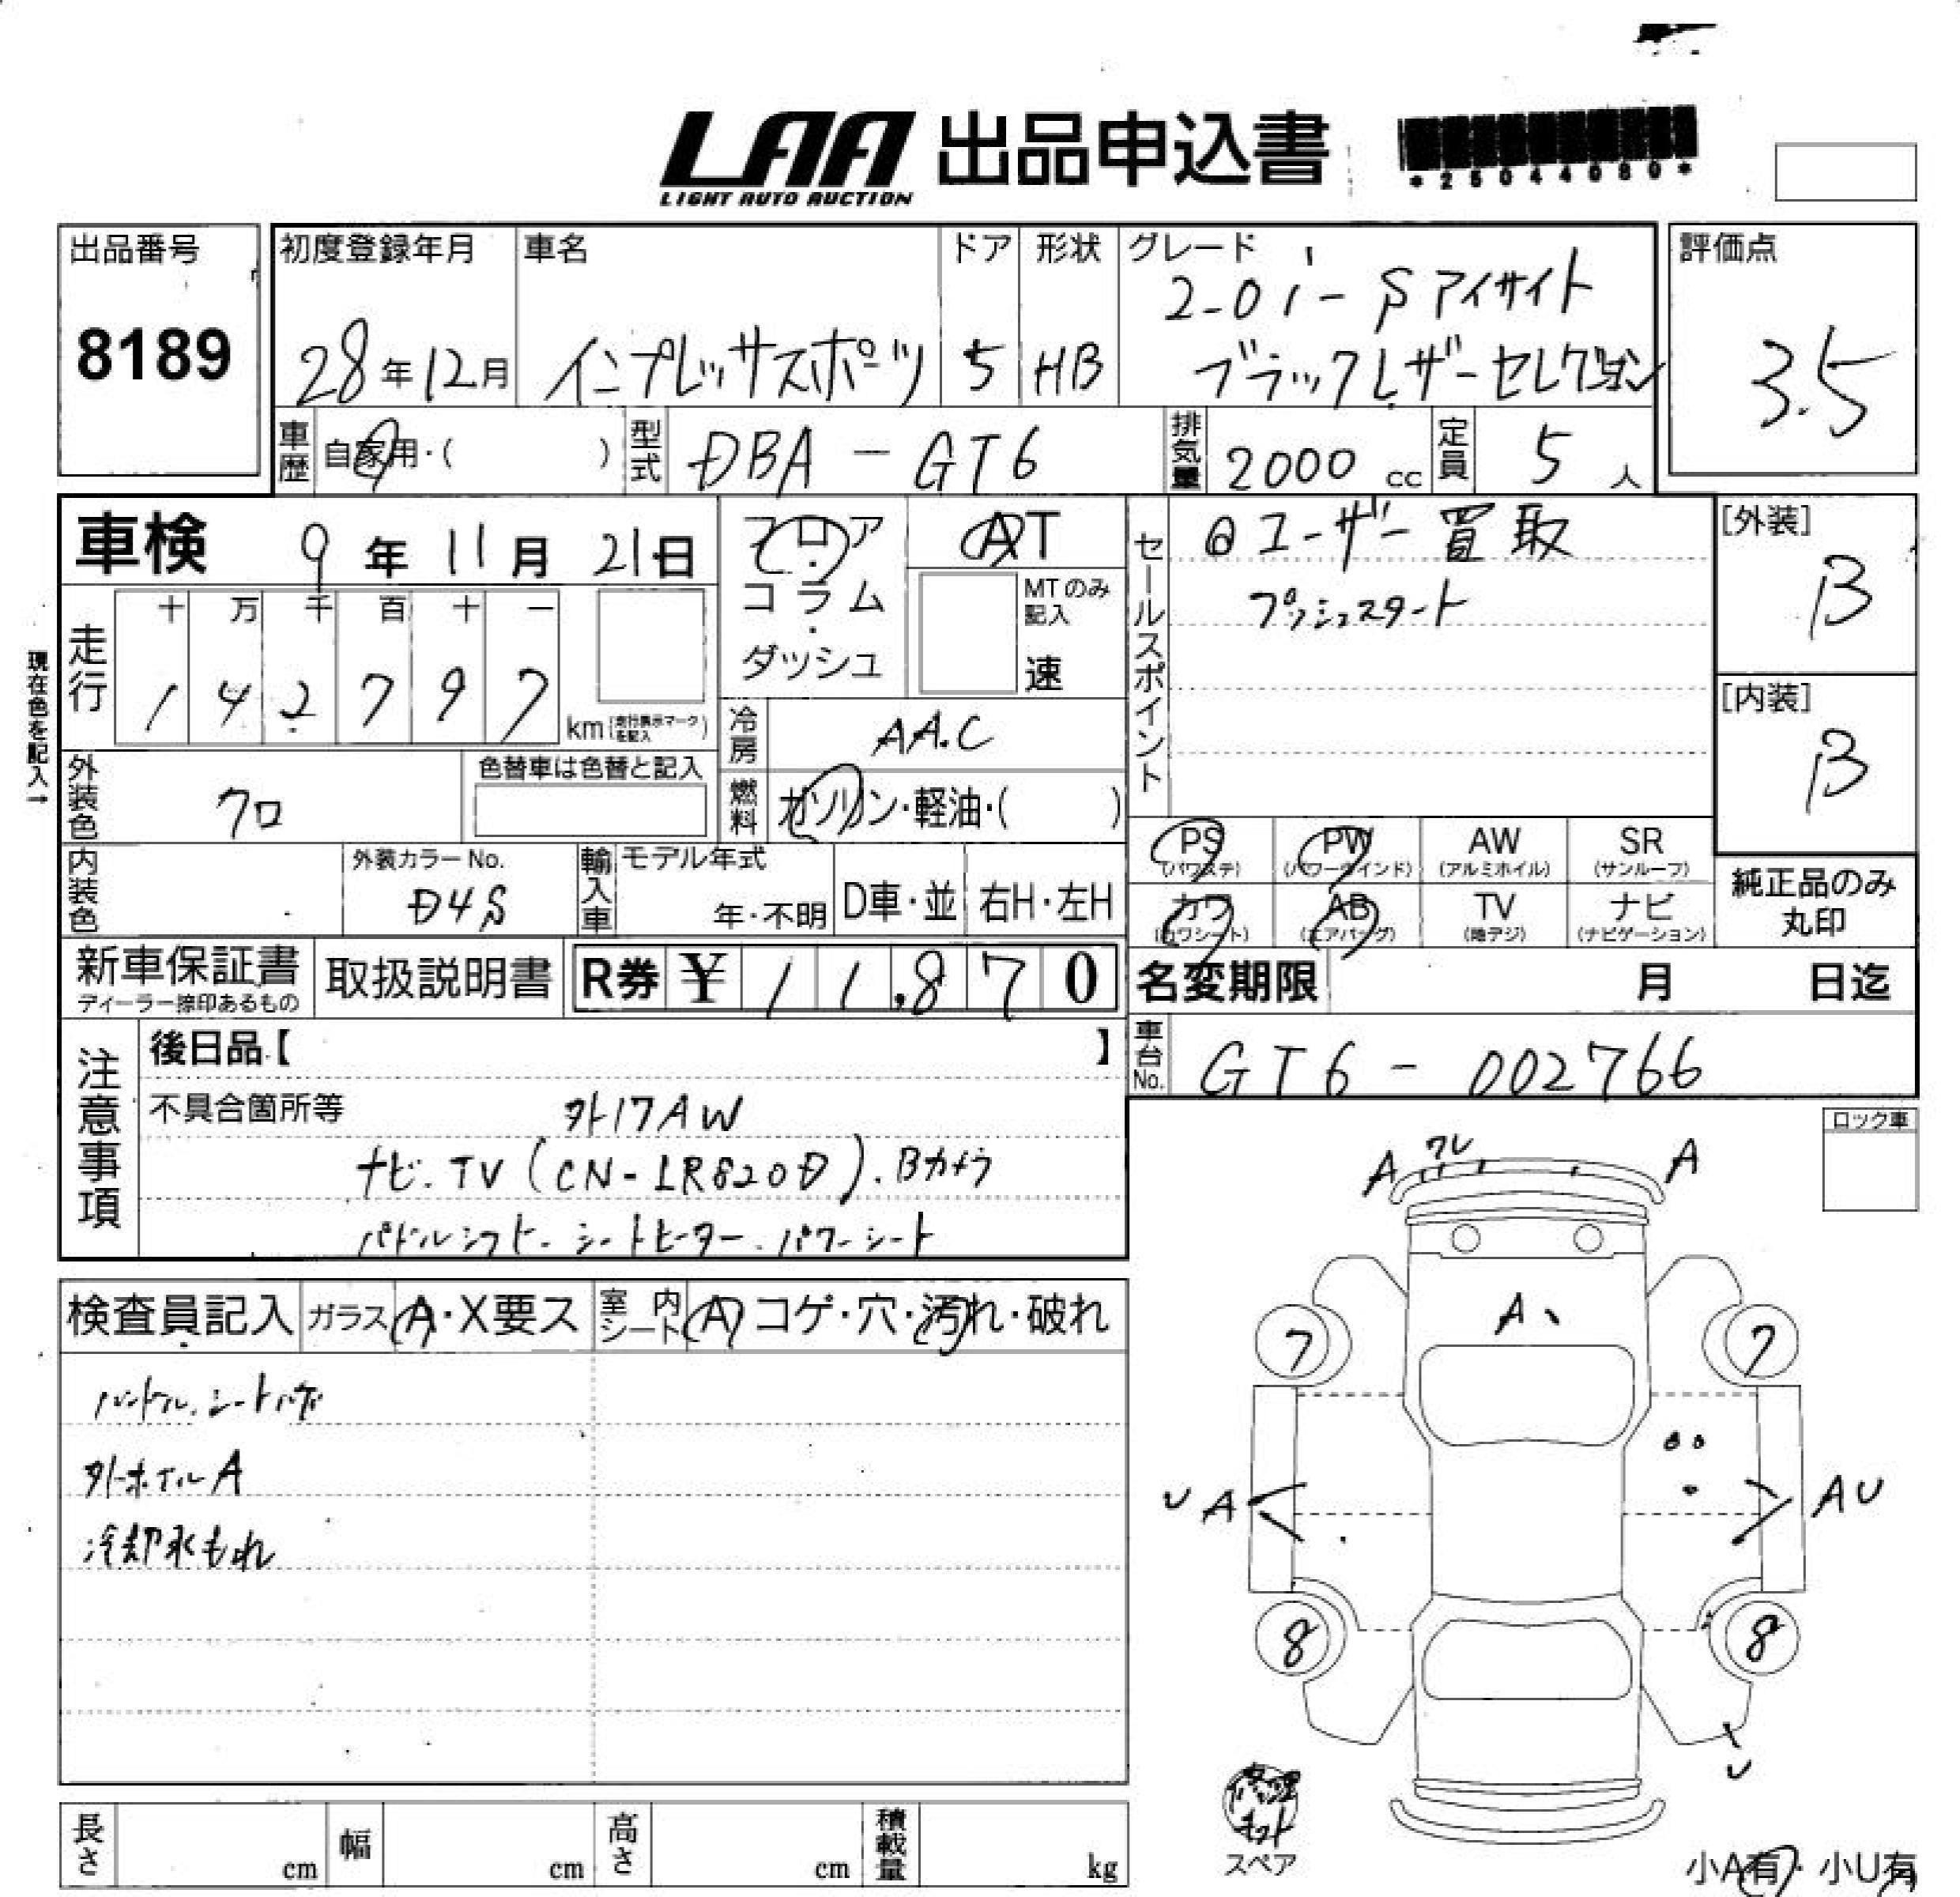 LAA 出品申込書
LIGHT AUTO AUCTION
*25044080*
出品番号
8189
初度登録年月
28年12月
車名
インプレッサスポーツ
ドア
5
形状
HB
グレード
2-0i-Sアイサイト
ブラックレザーセレクション
評価点
3.5
車歴
自家用・( )
型式
DBA-GT6
排気量
2000 cc
定員
5 人
車検 9年11月21日
フロア・コラム・ダッシュ
AT
MTのみ記入
速
セールスポイント
@ユーザー買取
プッシュスタート
[外装]
B
[内装]
B
現在色を記入→
走行
十 万 千 百 十 一
1 4 2 7 9 7
km(走行表示マークを記入)
冷房
AA.C
燃料
ガソリン・軽油・( )
外装色
クロ
色替車は色替と記入
内装色
外装カラーNo.
D4S
輸入車
モデル年式
年・不明
D車・並
右H・左H
PS (パワステ)
PW (パワーウインド)
AW (アルミホイル)
SR (サンルーフ)
カワ (カワシート)
AB (エアバッグ)
TV (地デジ)
ナビ (ナビゲーション)
純正品のみ丸印
新車保証書
ディーラー捺印あるもの
取扱説明書
R券 ¥ 11,870
名変期限 月 日迄
車台No.
GT6-002766
注意事項
後日品【 】
不具合箇所等
外17AW
ナビ.TV(CN-LR820D).Bカメラ
パドルシフト.シートヒーター.パワーシート
検査員記入
ガラス A・X要ス
室内シート A コゲ・穴・汚れ・破れ
外ホイルA
冷却水もれ
ロック車
A ワレ A
A
7 7
UA AU
8 8
U
修理キット
スペア
小A有・小U有
長さ cm
幅 cm
高さ cm
積載量 kg